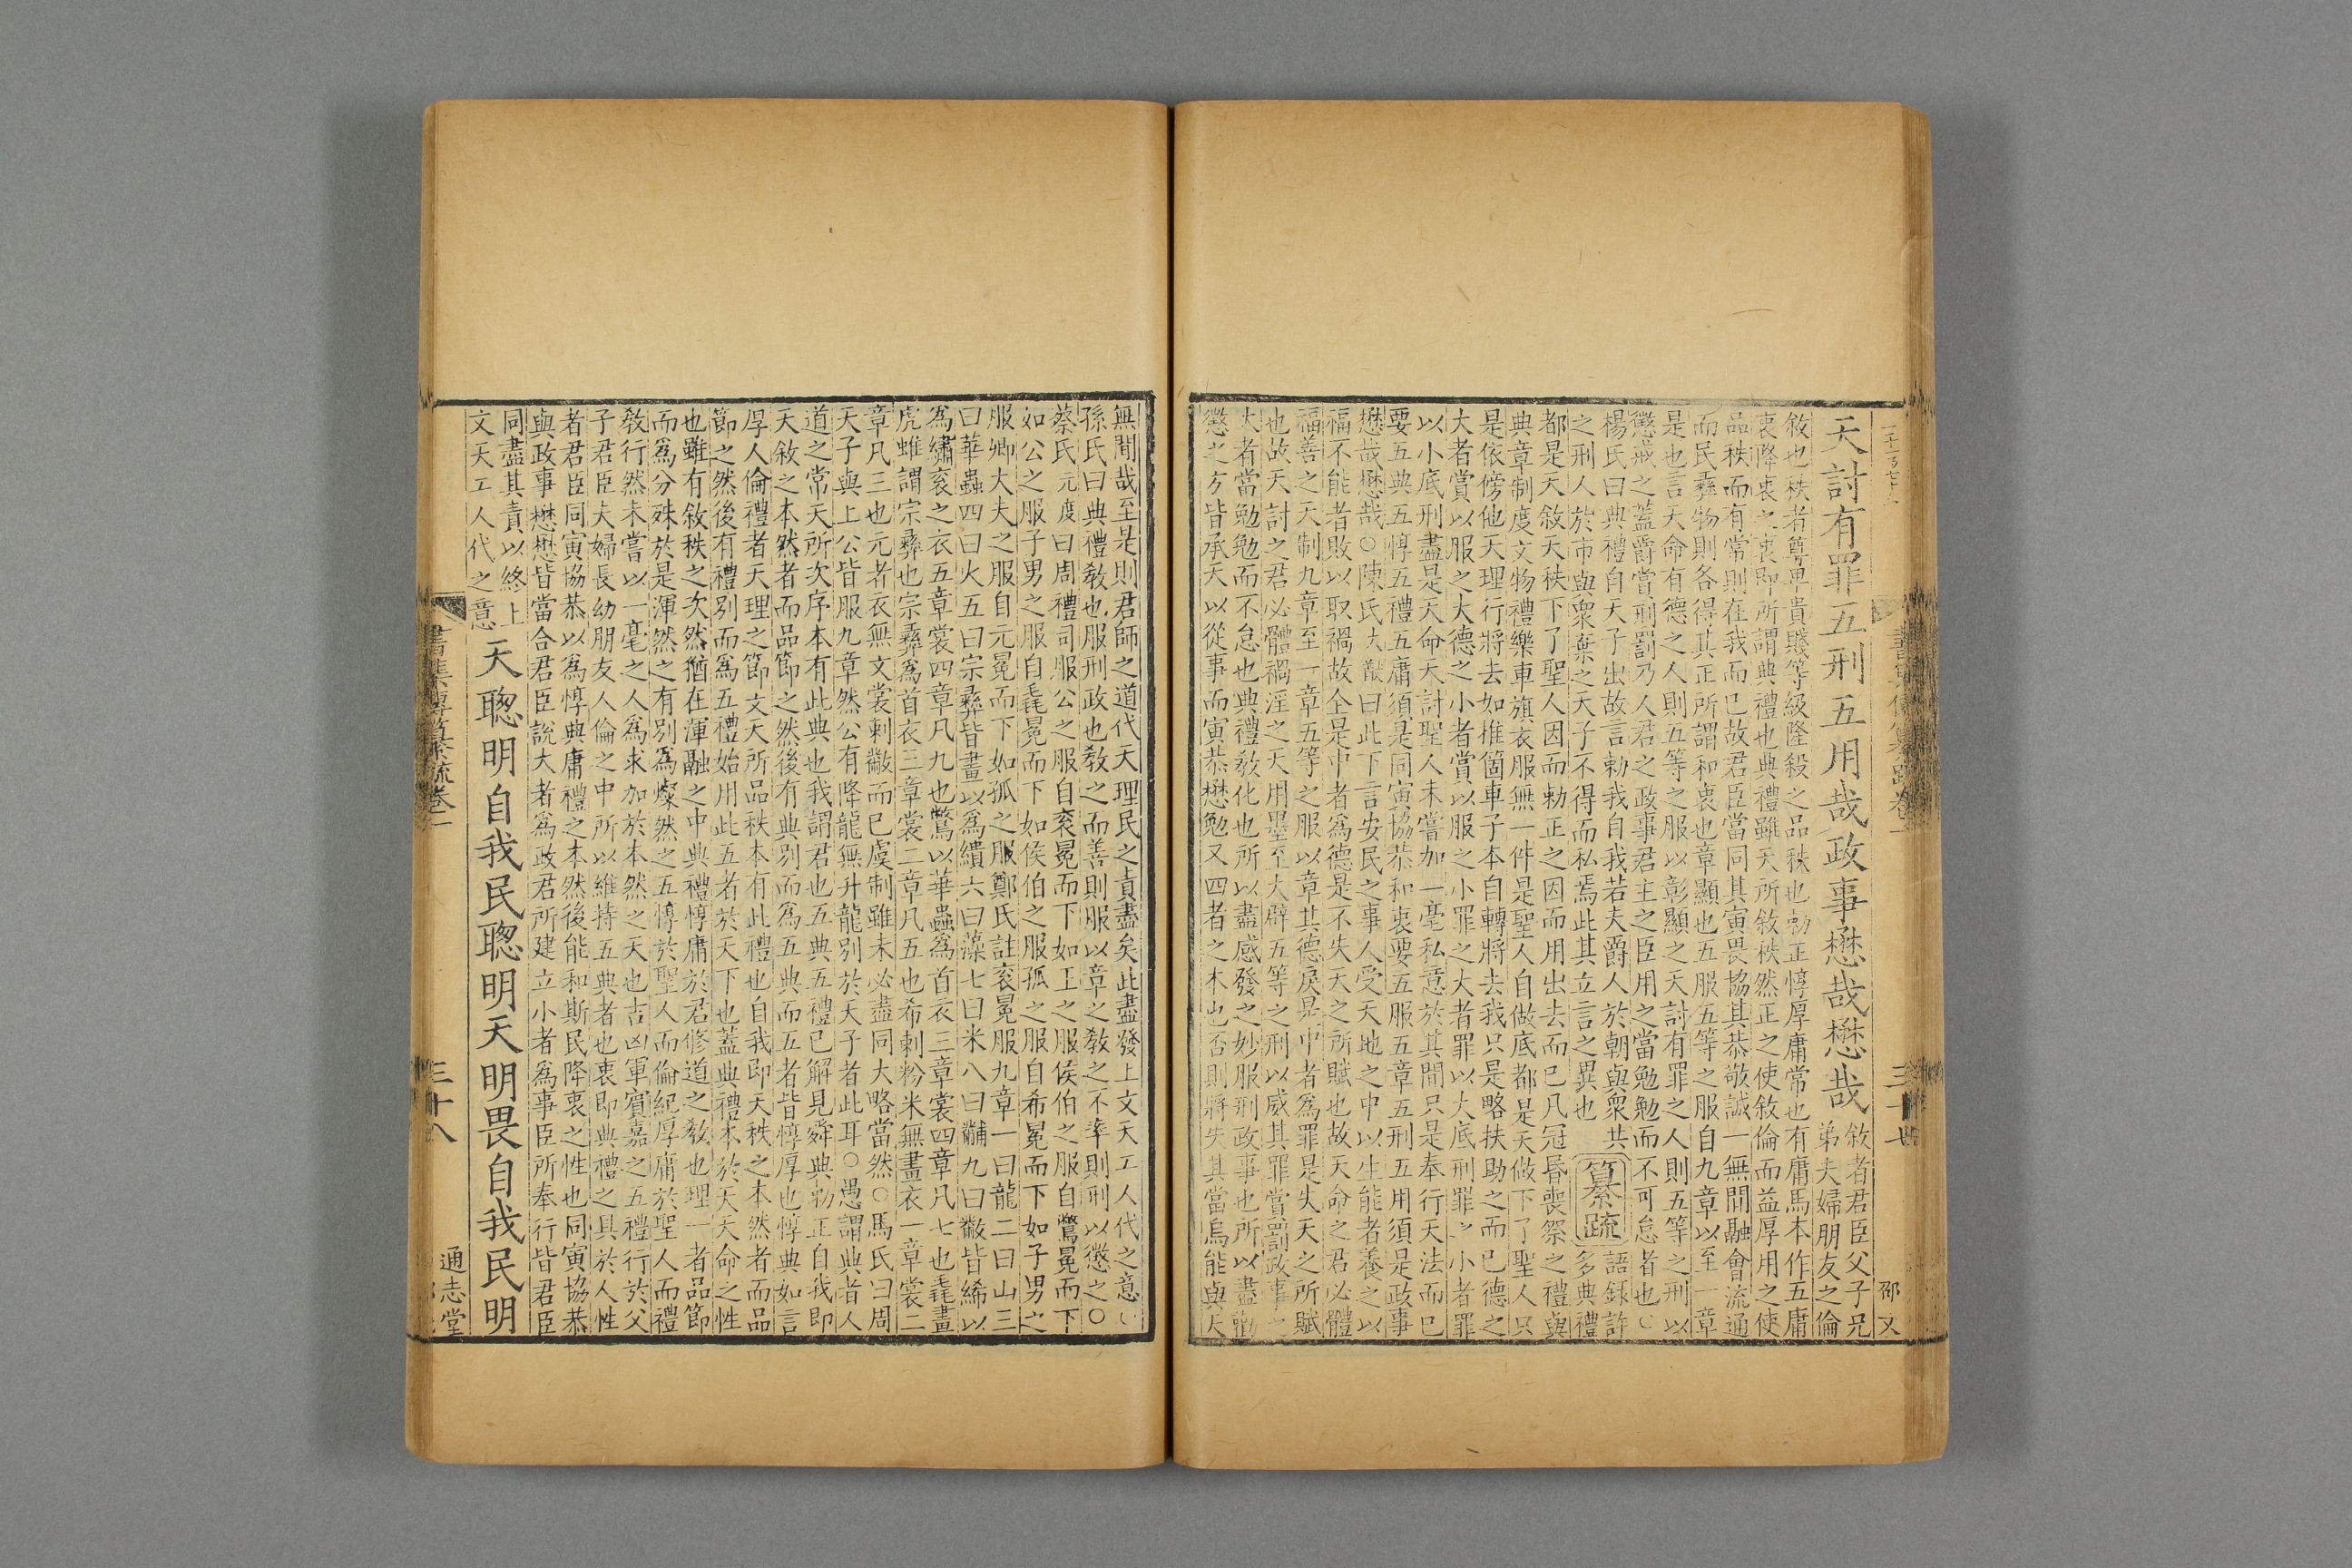 書集傳纂疏卷一
三十七
邵又
天討有罪五刑五用哉政事懋哉懋哉
敘者君臣父子兄
弟夫婦朋友之倫
敘也秩者尊卑貴賤等級隆殺之品秩也勑正惇厚庸常也有庸馬本作五庸
衷降衷之衷即所謂典禮也典禮雖天所敘秩然正之使敘倫而益厚用之使
品秩而有常則在我而已故君臣當同其寅畏協其恭敬誠一無間融會流通
而民彝物則各得其正所謂和衷也章顯也五服五等之服自九章以至一章
是也言天命有德之人則五等之服以彰顯之天討有罪之人則五等之刑以
懲戒之蓋爵賞刑罰乃人君之政事君主之臣用之當勉勉而不可怠者也○
楊氏曰典禮自天子出故言勑我自我若夫爵人於朝與衆共
之刑人於市與衆棄之天子不得而私焉此其立言之異也
纂疏
語錄許
多典禮
都是天敘天秩下了聖人因而勑正之因而用出去而已凡冠昏喪祭之禮與
典章制度文物禮樂車旗衣服無一件是聖人自做底都是天做下了聖人只
是依傍他天理行將去如推箇車子本自轉將去我只是略扶助之而已德之
大者賞以服之大德之小者賞以服之小罪之大者罪以大底刑罪之小者罪
以小底刑盡是天命天討聖人未嘗加一毫私意於其間只是奉行天法而已
要五典五惇五禮五庸須是同寅協恭和衷要五服五章五刑五用須是政事
懋哉懋哉○陳氏大猷曰此下言安民之事人受天地之中以生能者養之以
福不能者敗以取禍故全是中者爲德是不失天之所賦也故天命之君必體
福善之天制九章至一章五等之服以章其德戾是中者爲罪是失天之所賦
也故天討之君必體禍淫之天用墨至大辟五等之刑以威其罪賞罰政事之
大者當勉勉而不怠也典禮敎化也所以盡感發之妙服刑政事也所以盡勸
懲之方皆承天以從事而寅恭懋勉又四者之本也否則將失其當烏能與天
無間哉至是則君師之道代天理民之責盡矣此盡發上文天工人代之意○
孫氏曰典禮敎也服刑政也敎之而善則服以章之敎之不率則刑以懲之○
蔡氏元度曰周禮司服公之服自衮冕而下如王之服侯伯之服自鷩冕而下
如公之服子男之服自毳冕而下如侯伯之服孤之服自希冕而下如子男之
服卿大夫之服自元冕而下如孤之服鄭氏註衮冕服九章一曰龍二曰山三
曰華蟲四曰火五曰宗彝皆畫以爲繢六曰藻七曰米八曰黼九曰黻皆絺以
爲繡衮之衣五章裳四章凡九也鷩以華蟲爲首衣三章裳四章凡七也毳畫
虎蜼謂宗彝也宗彝爲首衣三章裳二章凡五也希刺粉米無畫衣一章裳二
章凡三也元者衣無文裳刺黻而已虞制雖未必盡同大略當然○馬氏曰周
天子與上公皆服九章然公有降龍無升龍別於天子者此耳○愚謂典者人
道之常天所次序本有此典也我謂君也五典五禮已解見舜典勑正自我即
天敘之本然者而品節之然後有典別而爲五典而五者皆惇厚也惇典如言
厚人倫禮者天理之節文天所品秩本有此禮也自我即天秩之本然者而品
節之然後有禮別而爲五禮始用此五者於天下也蓋典禮本於天天命之性
也雖有敘秩之次然猶在渾融之中典禮惇庸於君修道之敎也理一者品節
而爲分殊於是渾然之有別爲燦然之五惇於聖人而倫紀厚庸於聖人而禮
敎行然未嘗以一毫之人爲求加於本然之天也吉凶軍賓嘉之五禮行於父
子君臣夫婦長幼朋友人倫之中所以維持五典者也衷即典禮之具於人性
者君臣同寅協恭以爲惇典庸禮之本然後能和斯民降衷之性也同寅協恭
與政事懋懋皆當合君臣說大者爲政君所建立小者爲事臣所奉行皆君臣
同盡其責以終上
文天工人代之意
天聰明自我民聰明天明畏自我民明
書集傳纂疏卷一
三十八
通志堂